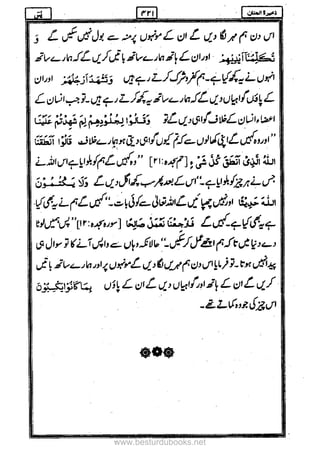 ذخیرۃ الجنان ۳۴۱ یٰسٓ
اس دن ہم مہر لگا دیں گے ان کے مونہوں پر منہ سے بول نہیں سکیں گے وَ
تُكَلِّمُنَاۤ اَیْدِیْهِمْ اور ان کے ہاتھ ہمارے ساتھ باتیں کریں گے کہ ہمارے ساتھ
انہوں نے یہ کچھ کیا ہے۔ ہم کفر شرک کرتے رہے ہیں وَتَشْهَدُ اَرْجُلُهُمْ اور ان
کے پاؤں گواہیاں دیں گے کہ ہمارے ساتھ یہ کچھ کرتے رہے ہیں۔ جب انسان کے
اعضاء انسان کے خلاف گواہی دیں گے تو وَقَالُوْا لِجُلُوْدِهِمْ لِمَ شَهِدْتُّمْ عَلَیْنَا
"اور وہ کہیں گے اپنی کھالوں سے کہ تم کیوں گواہی دیتی ہو ہمارے خلاف قَالُوْۤا اَنْطَقَنَا
اللّٰهُ الَّذِیْۤ اَنْطَقَ كُلَّ شَیْءٍ [حم سجدہ: ۲۱] "وہ کہیں گے ہم کو بلوایا ہے اس اللہ نے
جس نے ہر چیز کو بلوایا ہے۔" اس کے بعد پھر سب کچھ اگل دیں گے وَلَا یَكْتُمُوْنَ
اللّٰهَ حَدِیْثًا "اور نہیں چھپائیں گے اللہ تعالیٰ سے کوئی بات۔" کہیں گے ہم نے یہ بھی کیا
ہے یہ بھی کیا ہے۔ کہیں گے فَارْجِعْنَا نَعْمَلْ صَالِحًا [سورہ سجدہ: ۱۲] "پس ہمیں لوٹا
دے دنیا میں تاکہ ہم اچھے عمل کر سکیں۔" حالانکہ وہاں سے واپس آنے کا تو سوال ہی
پیدا نہیں ہوتا۔ تو فرمایا اس دن ہم مہر لگا دیں گے مونہوں پر اور ہمارے ساتھ باتیں
کریں گے ان کے ہاتھ اور گواہیاں دیں گے ان کے پاؤں بِمَا كَانُوْا یَكْسِبُوْنَ
اس چیز کی جو وہ کماتے تھے۔
www.besturdubooks.net